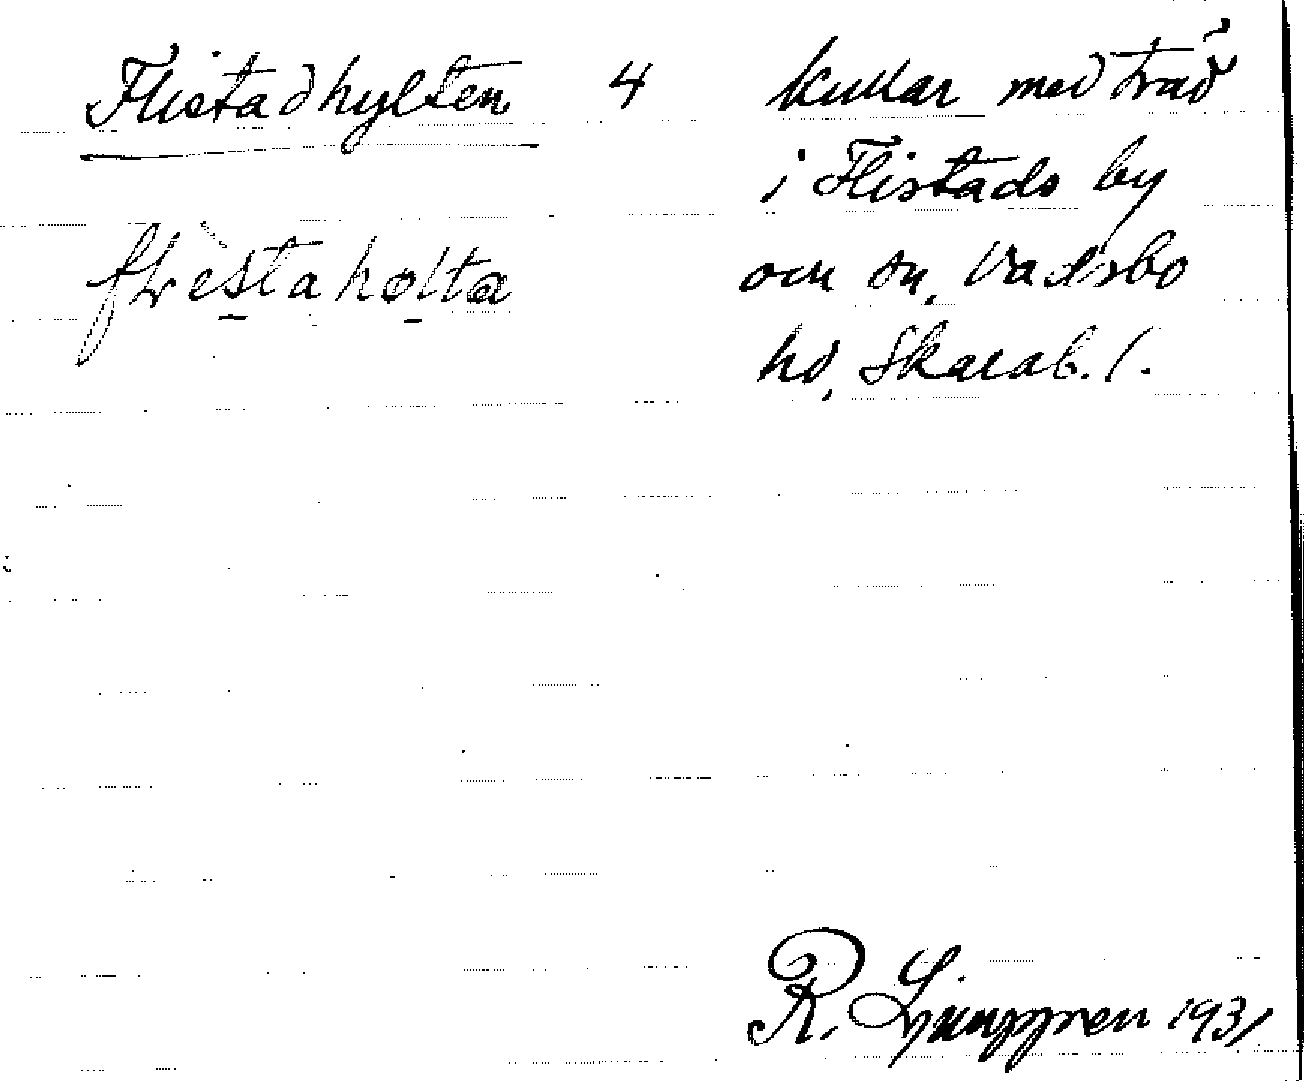 Flistadhylten 4 kullar med träd
i Flistads by
och sn, Vadsbo
hd, Skarab. l.
R. Ljunggren 1931